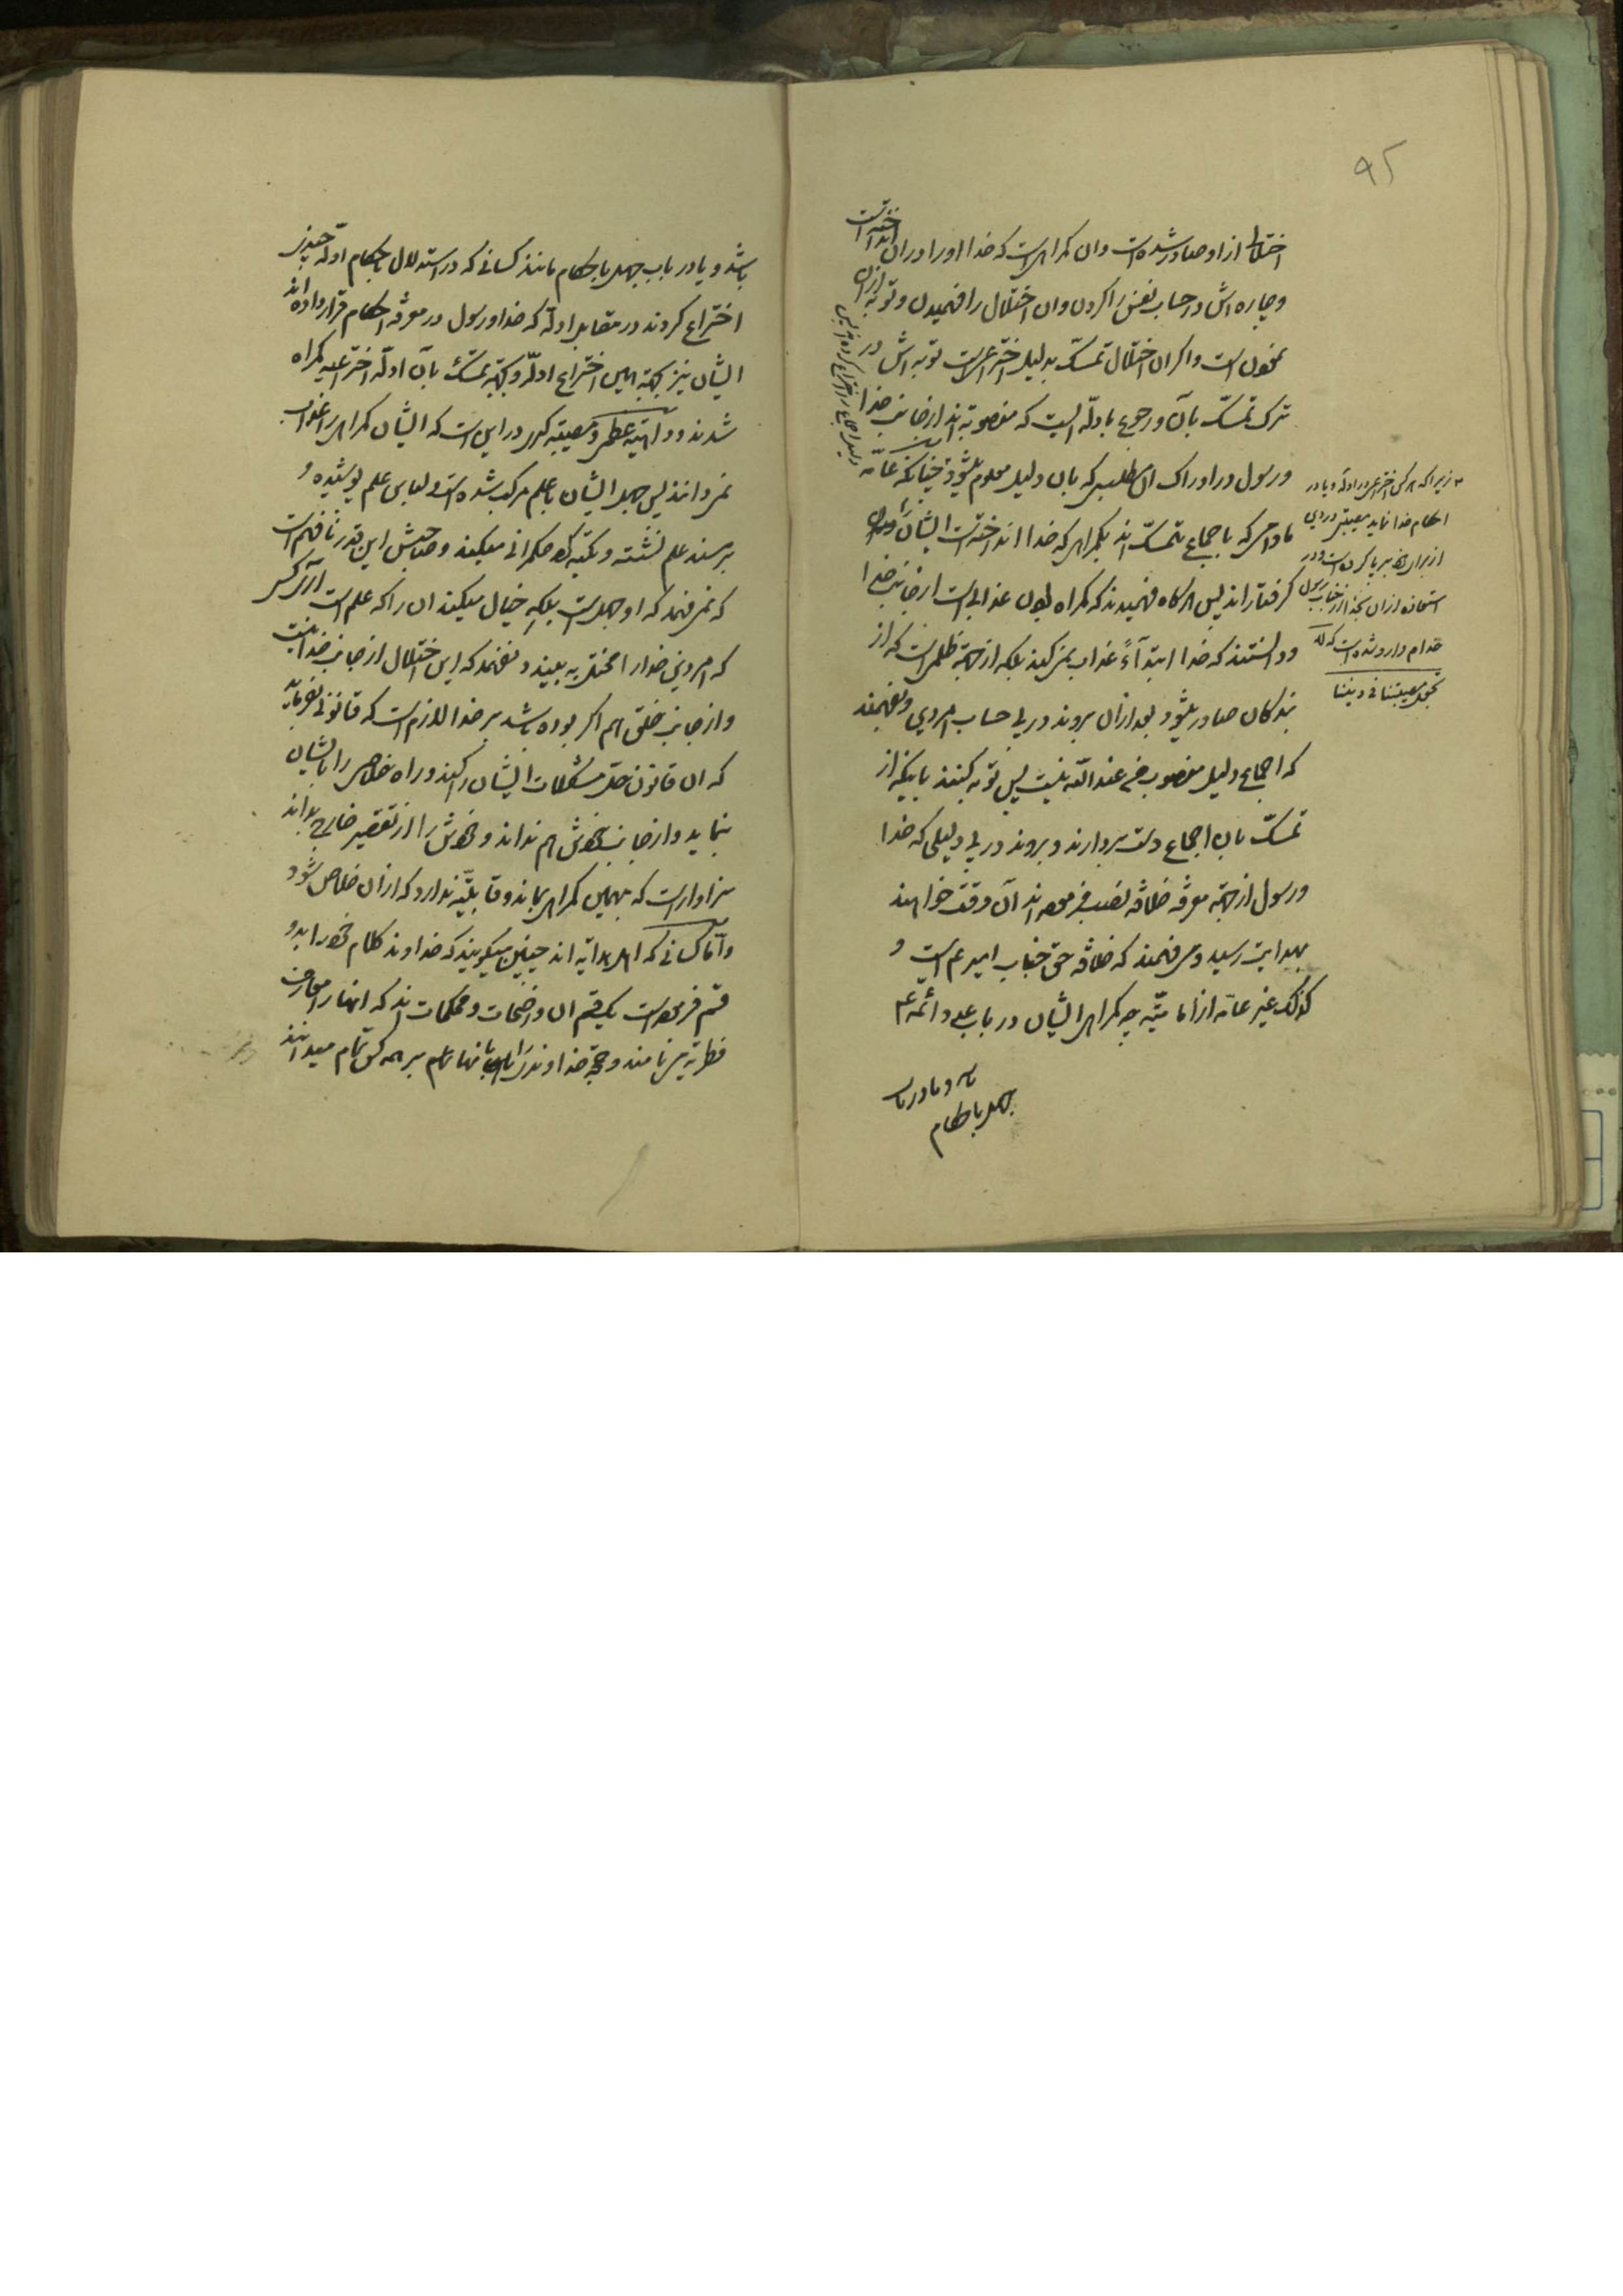 ۹۵
اختلالی از او صادر شده است وان کمراهی است که خدا او را در ان انداخته است
وچاره اش در حساب نفس را کردن وان اختلال را فهمیدن وتوبه از ان
نمودن است واکر ان اختلال تمسّک بدلیل اختراعی است توبه اش در
ترک تمسّک بآن ورجوع بادلّه ایست که منصوبه اند از جانب خدا
ورسول در ادراک ان مطلبی که بان دلیل معلوم میشود چنانکه عامّه
مادامی که باجماع متمسّک اند بکمراهی که خدا انداخته است ایشان را در ان
کرفتار اند پس هرکاه فهمیدند که کمراه بودن عذابی است از جانب خدا
ودانستند که خدا ابتدآءً عذاب نمیکند بلکه از جهة ظلمی است که از
بندکان صادر میشود بعد از ان بروند در پی حساب امر دین وبفهمند
که اجماع دلیل منصوب من عند اللّه نیست پس توبه کنند باینکه از
تمسّک بان اجماع دست بردارند وبروند در پی دلیلی که خدا
ورسول از جهة معرفة خلافة نصب فرموده اند آن وقت خواهند
بهدایت رسید ومی فهمند که خلافة حق جناب امیر ع است و
کذلک غیر عامّه از امامیّه چه کمراهی ایشان در باب علی وائمّه ع
باشد ویا در باب
جهل باحکام
زیرا که هر کس اختراعی در ادلّه ویا در
احکام خدا نماید مصیبتی در دین
از برای خود بر پا کرده است ودر
استعاذه از ان بخدا از جناب رسول
خدا م وارد شده است که لا
تجعل مصیبتنا فی دیننا
باشد ویا در باب جهل باحکام مانند کسانی که در استدلال باحکام ادلّه چندی
اختراع کردند در مقابل ادلّه که خدا ورسول در معرفة احکام قرار داده اند
ایشان نیز بجهة همین اختراع ادلّه وبجهة تمسّک بآن ادلّه اختراعیه کمراه
شدند وداهیه عظمی ومصیبه کبری در این است که ایشان کمراهی را غوایت
نمی دانند پس جهل ایشان با علم مرکب شده است ولباس علم پوشیده و
بر مسند علم نشسته وتکیه کرده حکمرانی میکند وصاحبش این قدر نافهم است
که نمی فهمد که او جهل است بلکه خیال میکند ان را که علم است اری کسی
که امر دین خدا را مختل به بیند ونفهمد که این اختلال از جانب خدا نیست
واز جانب خلق هم اکر بوده باشد بر خدا لازم است که قانونی بفرماید
که ان قانون حلّ مشکلات ایشان را کند وراه خلاصی را بایشان
بنماید واز جانب خودش هم نداند وخودش را از تقصیر خارج بداند
سزاوار است که بهمین کمراهی بماند وقابلیّة ندارد که از ان خلاص شود
وامّا کسانی که اهل هدایه اند چنین میکویند که خداوند کلام خود را بدو
قسم فرموده است یکقسم ان واضحات ومحکمات اند که انها را معارف
فطریّه می نامند وحجّة خداوند را بانها تمام بر همه کس تمام میدانند